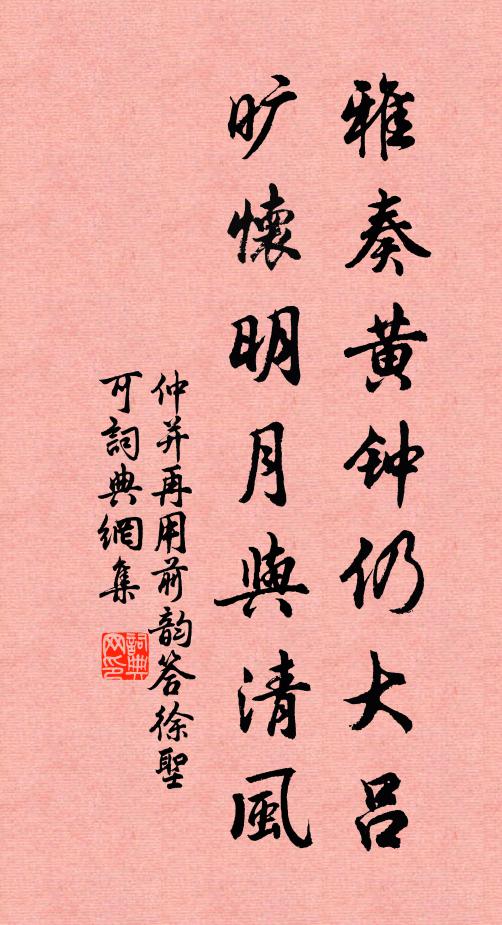 雅奏黄钟仍大吕
旷懷明月與清風
仲并再用前韵答徐聖
可詞典網集
詞典網印